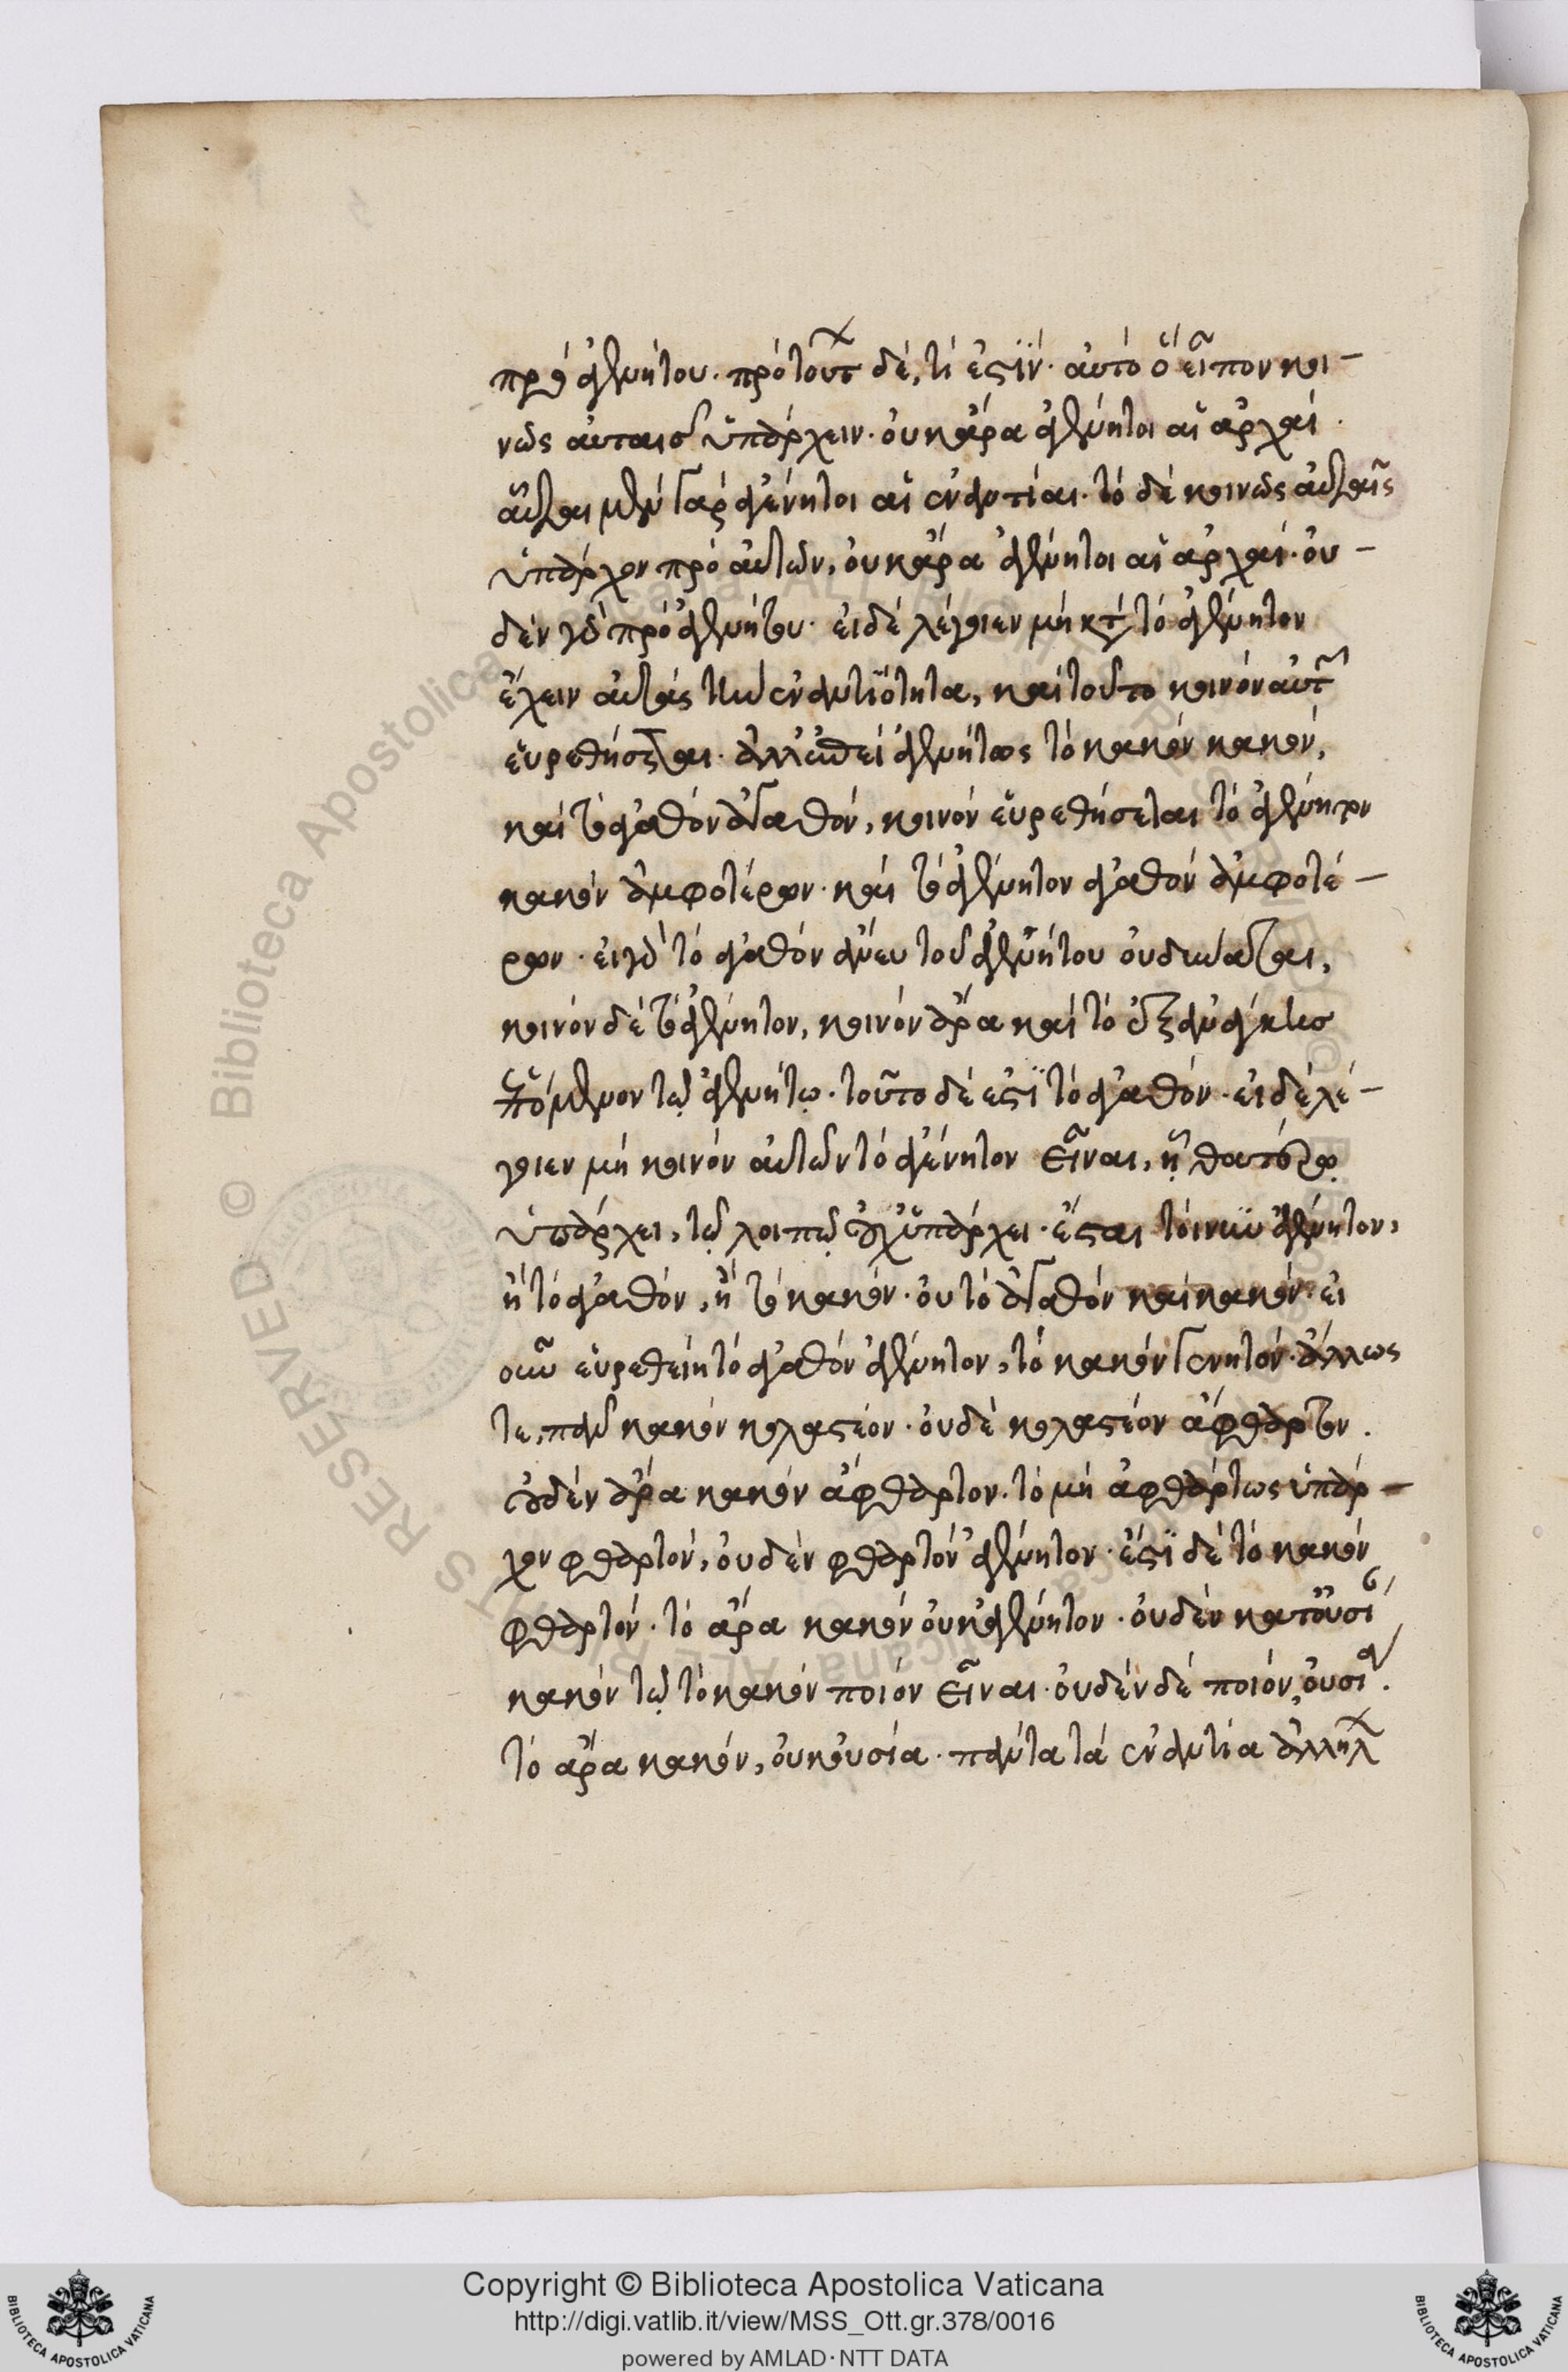 πρὸ ἀγενήτου. πρὸ τούτων δέ, τί ἐστιν. αὐτὸ ὃ εἶπον κοι-
νῶς αὐταῖς ὑπάρχειν. οὐκ ἄρα ἀγένητοι αἱ ἀρχαί.
αὗται μὲν γὰρ ἀγένητοι αἱ ἐναντίαι. τὸ δὲ κοινῶς αὐταῖς
ὑπάρχον πρὸ αὐτῶν, οὐκ ἄρα ἀγένητοι αἱ ἀρχαί. οὐ-
δὲν γὰρ πρὸ ἀγενήτου. εἰ δὲ λέγοιεν μὴ κατὰ τὸ ἀγένητον
ἔχειν αὐτὰς τὴν ἐναντιότητα, καὶ τοῦτο κοινὸν αὐτῶν
εὑρεθήσεται. ἀλλ' ἐπεὶ ἀγενήτως τὸ κακὸν κακόν,
καὶ τὸ ἀγαθὸν ἀγαθόν, κοινὸν εὑρεθήσεται τὸ ἀγένητον
κακὸν ἀμφοτέρων. καὶ τὸ ἀγένητον ἀγαθὸν ἀμφοτέ-
ρων. εἰ γὰρ τὸ ἀγαθὸν ἄνευ τοῦ ἀγενήτου οὐ δύναται,
κοινὸν δὲ τὸ ἀγένητον, κοινὸν ἄρα καὶ τὸ ἐξ ἀνάγκης
ἑπόμενον τῷ ἀγενήτῳ. τοῦτο δέ ἐστι τὸ ἀγαθόν. εἰ δὲ λέ-
γοιεν μὴ κοινὸν αὐτῶν τὸ ἀγένητον εἶναι, ᾗ θατέρῳ
ὑπάρχει, τῷ λοιπῷ οὐχ ὑπάρχει. ἔσται τοίνυν ἀγένητον,
ἢ τὸ ἀγαθόν, ἢ τὸ κακόν. οὐ τὸ ἀγαθὸν καὶ κακόν. εἰ
οὖν εὑρεθείη τὸ ἀγαθὸν ἀγένητον, τὸ κακὸν γενητόν. ἄλλως
τε, πᾶν κακὸν κολαστέον. οὐδὲ κολαστέον ἄφθαρτον.
οὐδὲν ἄρα κακὸν ἄφθαρτον. τὸ μὴ ἀφθάρτως ὑπάρ-
χον φθαρτόν, οὐδὲν φθαρτὸν ἀγένητον. ἔστι δὲ τὸ κακὸν
φθαρτόν. τὸ ἄρα κακὸν οὐκ ἀγένητον. οὐδὲν κατ' οὐσίαν
κακὸν τῷ τὸ κακὸν ποιὸν εἶναι. οὐδὲν δὲ ποιόν, οὐσία.
τὸ ἄρα κακόν, οὐκ οὐσία. πάντα τὰ ἐναντία ἀλλήλων
Copyright © Biblioteca Apostolica Vaticana
http://digi.vatlib.it/view/MSS_Ott.gr.378/0016
powered by AMLAD·NTT DATA